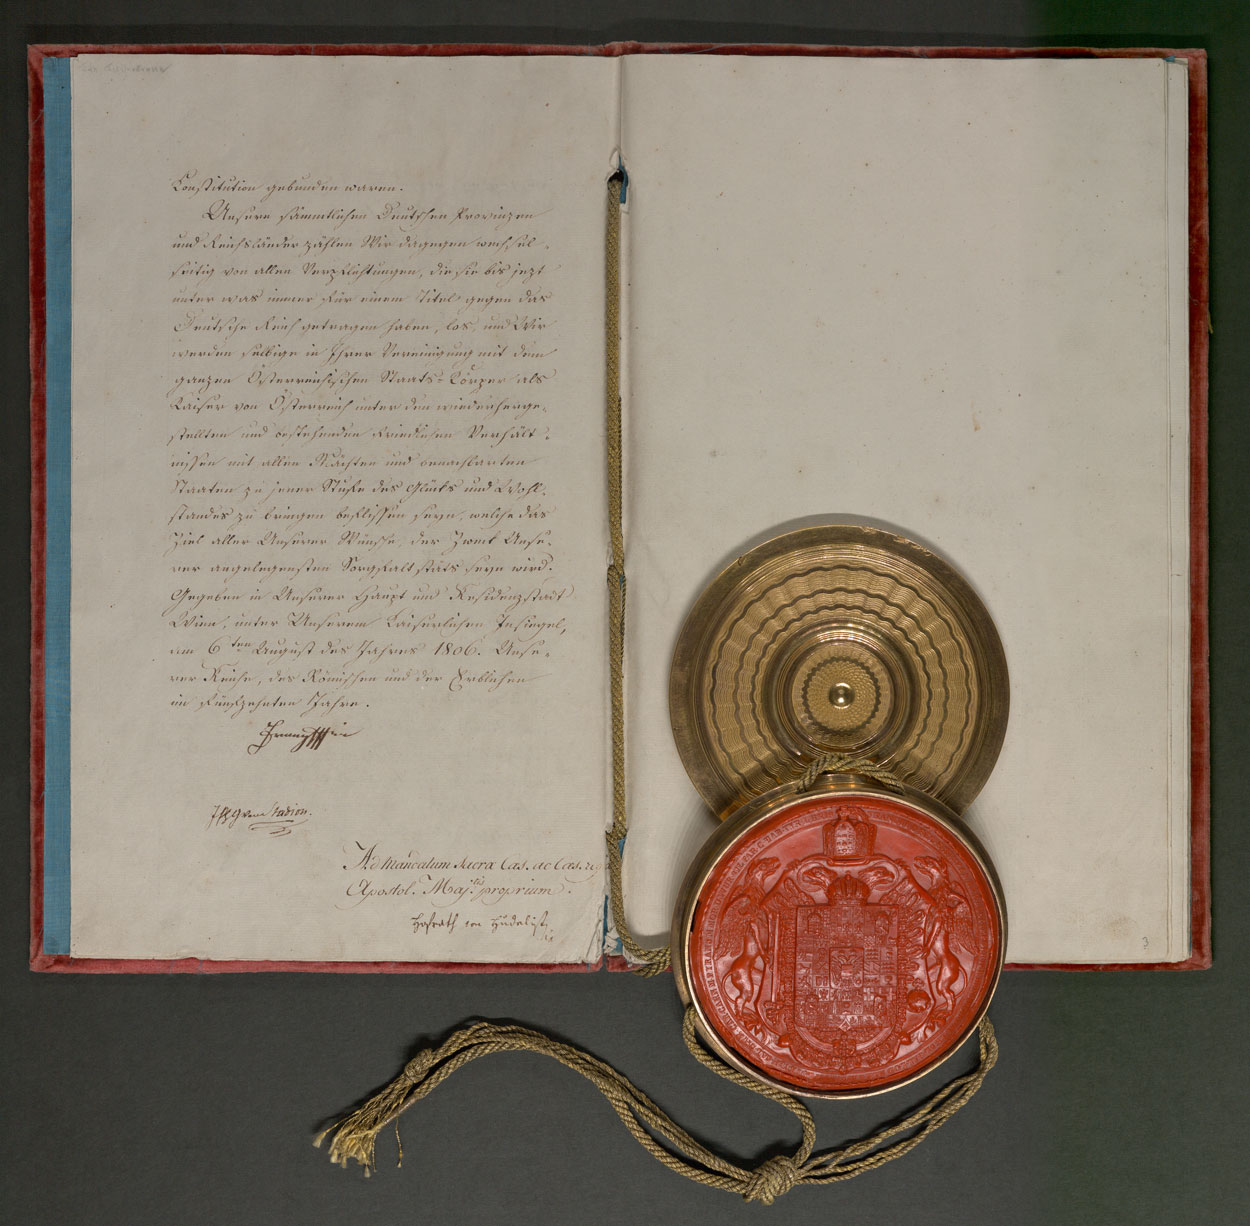 Constitution gebunden waren.
Unsere sämmtlichen Deutschen Provinzen
und Reichsländer zählen Wir dagegen wechsel-
seitig von allen Verpflichtungen, die sie bis jezt
unter was immer für einem Titel gegen das
Deutsche Reich getragen haben, los, und Wir
werden selbige in Ihrer Vereinigung mit dem
ganzen Österreichischen Staats-Körper als
Kaiser von Österreich unter den wiederherge-
stellten und bestehenden friedlichen Verhält-
nissen mit allen Mächten und benachbarten
Staaten zu jener Stuffe des Glücks und Wohl-
standes zu bringen beflissen seyn, welche das
Ziel aller Unserer Wünsche, der Zweck Unse-
rer angelegensten Sorgfalt stäts seyn wird.
Gegeben in Unserer Haupt und Residenzstadt
Wien, unter Unserem Kaiserlichen Insiegel,
am 6ten August des Jahres 1806. Unse-
rer Reiche, des Römischen und der Erblichen
im fünfzehnten Jahre.
Franz
Stadion.
Ad Mandatum Sacræ Cæs. ac Cæs. reg.
Apostol. Maj.tis proprium.
Hofrath von Hudelist
3